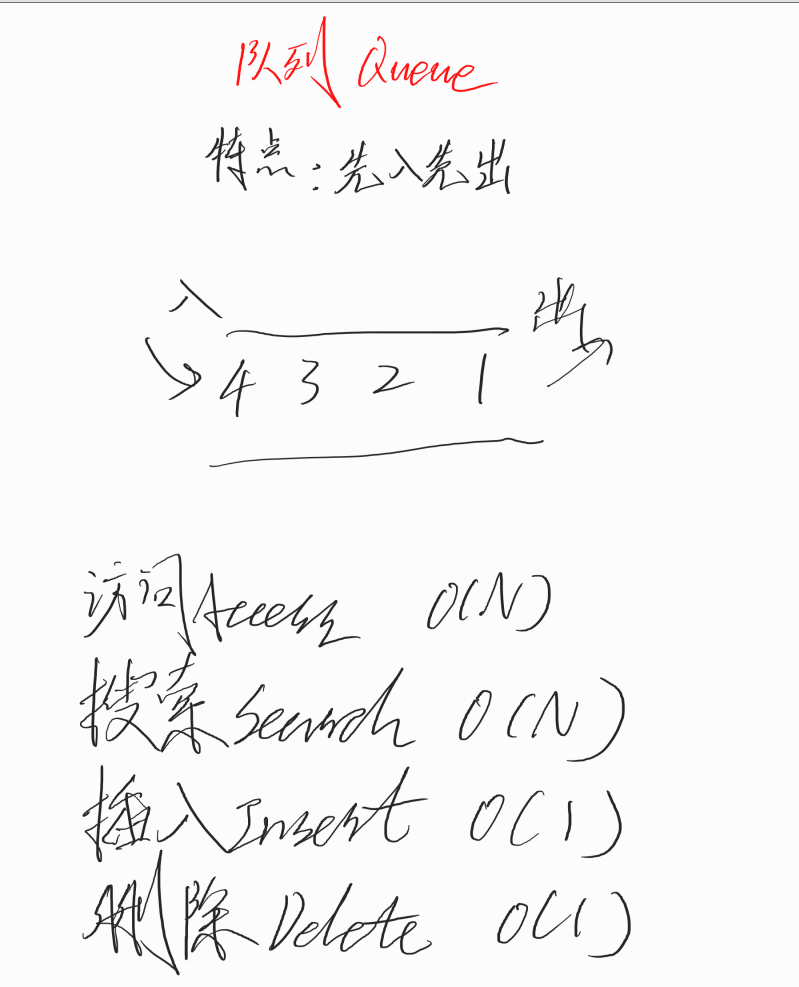 队列 Queue
特点：先入先出
入 出
4 3 2 1
访问 Access O(N)
搜索 Search O(N)
插入 Insert O(1)
删除 Delete O(1)